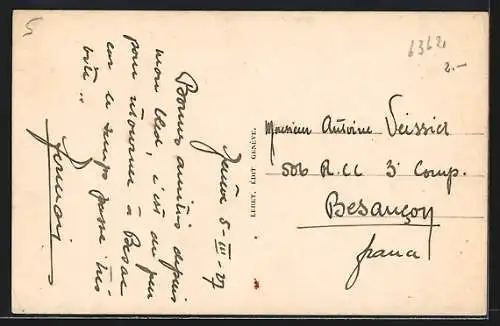 6362
2.-
Genève 8-III-27
Bonnes amitiés depuis
mon bled, c'est du peu
pour retourner à Besac
car le temps passe très
vite..
LUDET. ÉDIT GENÈVE.
Monsieur Antoine Veissid
506 R.CC 3e Comp.
Besançon
France